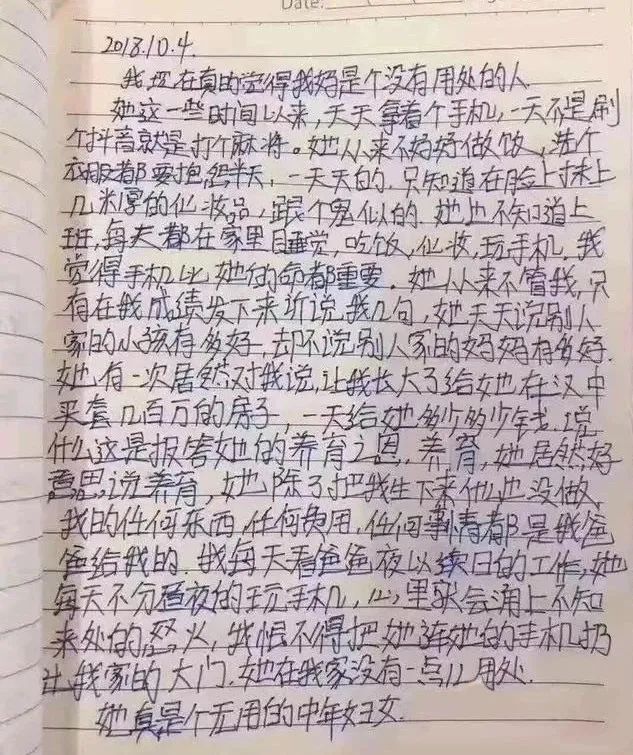 Date:
2018.10.4.
我现在真的觉得我妈是个没有用处的人
她这一些时间以来，天天拿着个手机，一天不是刷
个抖音就是打个麻将。她从来不好好做饭，洗个
衣服都要抱怨半天，一天天的，只知道在脸上抹上
几米厚的化妆品，跟个鬼似的，她也不知道上
班，每天都在家里睡觉，吃饭，化妆，玩手机，我
觉得手机比她的命都重要。她从来不管我，只
有在我成绩发下来近说我几句，她天天说别人
家的小孩有多好，却不说别人家的妈妈有多好.
她有一次居然对我说，让我长大了给她在汉中
买套几百万的房子，一天给她多少多少钱，说
什么这是报答她的养育之恩，养育，她居然好
意思说养育，她除了把我生下来他也没做，
我的任何东西，任何费用，任何事情都是我爸
爸给我的，我每天看爸爸夜以续日的工作，她
每天不分昼夜的玩手机，心里就会涌上不知
来处的怒火，我恨不得把她连她的手机扔
出我家的大门，她在我家没有一点儿用处.
她真是个无用的中年妇女.